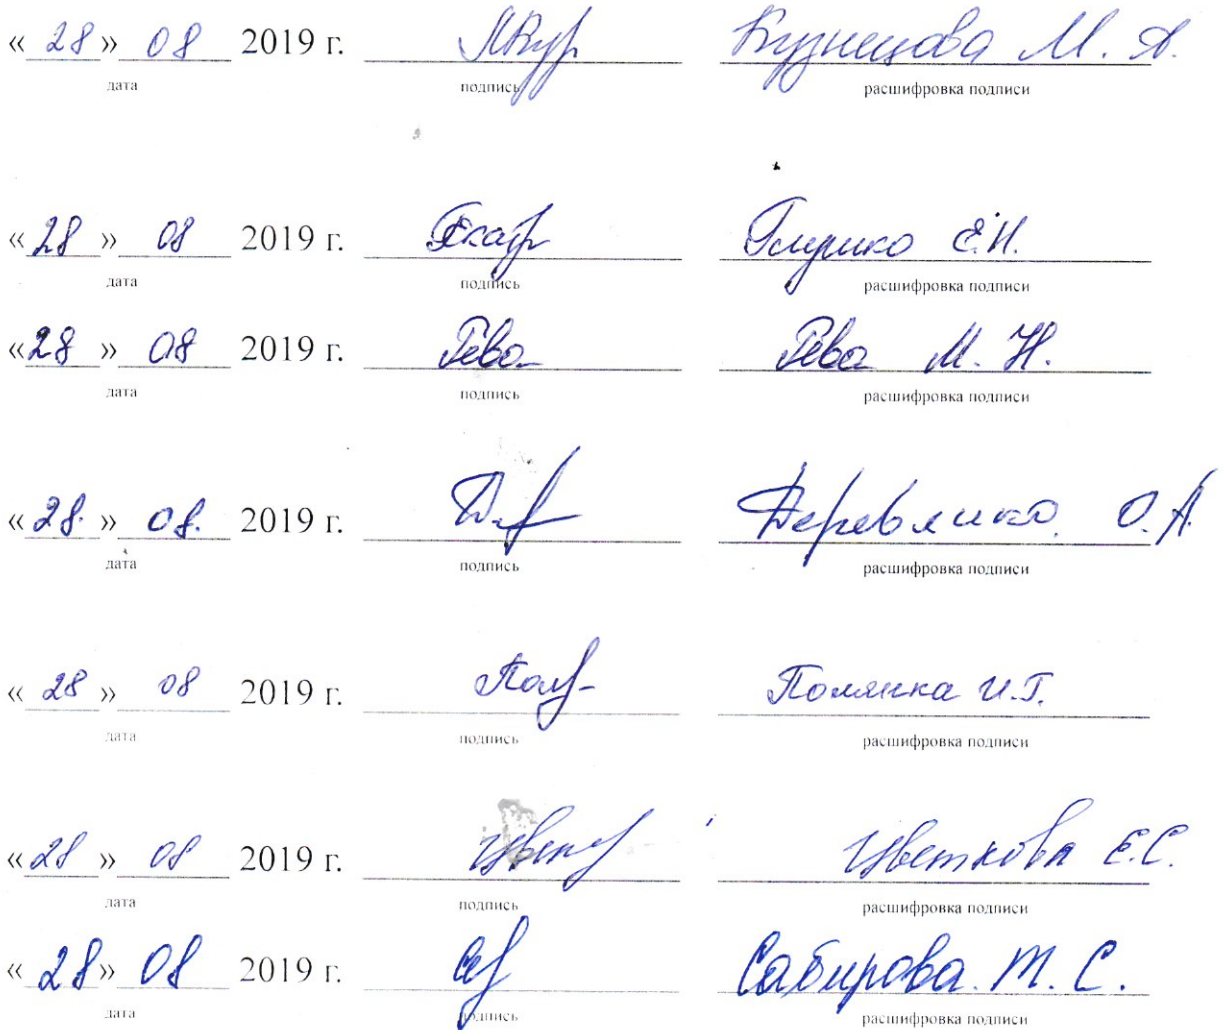 « 28 » 08 2019 г. Кузнецова М. А.
дата подпись расшифровка подписи
« 28 » 08 2019 г. Е.Н.
дата подпись расшифровка подписи
« 28 » 08 2019 г. Рева Рева М. Н.
дата подпись расшифровка подписи
« 28. » 08. 2019 г. Деревянко О.А.
дата подпись расшифровка подписи
« 28 » 08 2019 г. Полянка И.Г.
дата подпись расшифровка подписи
« 28 » 08 2019 г. Цветкова Е.С.
дата подпись расшифровка подписи
« 28 » 08 2019 г. Сабирова Т. С.
дата подпись расшифровка подписи